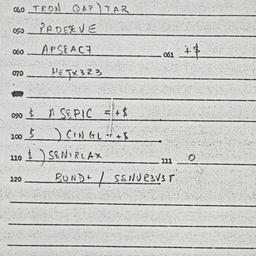 040 TRON QAP)TAR
050 PADEREVE
060 APSEAC7 061 +$
070 HETX323
090 $ A SEPIC = +$
100 $ ) CINGL +$
110 $ ) SENIRLAX 111 0
120 BOND+ / SENVR3V3T